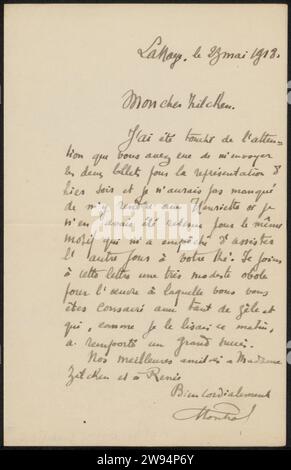 La Haye, le 23 mai 1918.
Mon cher Zilcken.
J'ai été touché de l'atten-
tion que vous avez eue de m'envoyer
les deux billets pour la représentation d'
hier soir et je n'aurais pas manqué
de m'y rendre avec Henriette si je
n'en avais été pour le même
motif qui m'a empêché d'assister
l'autre jour à votre thé. Je joins
à cette lettre une très modeste obole
pour l'œuvre à laquelle vous vous
êtes consacré avec tant de zèle et
qui, comme je le lisais ce matin,
a remporté un grand succès.
Nos meilleures amitiés à Madame
Zilcken et à Renée
Bien cordialement
alamy
Image ID: 2WN94P6Y
www.alamy.com